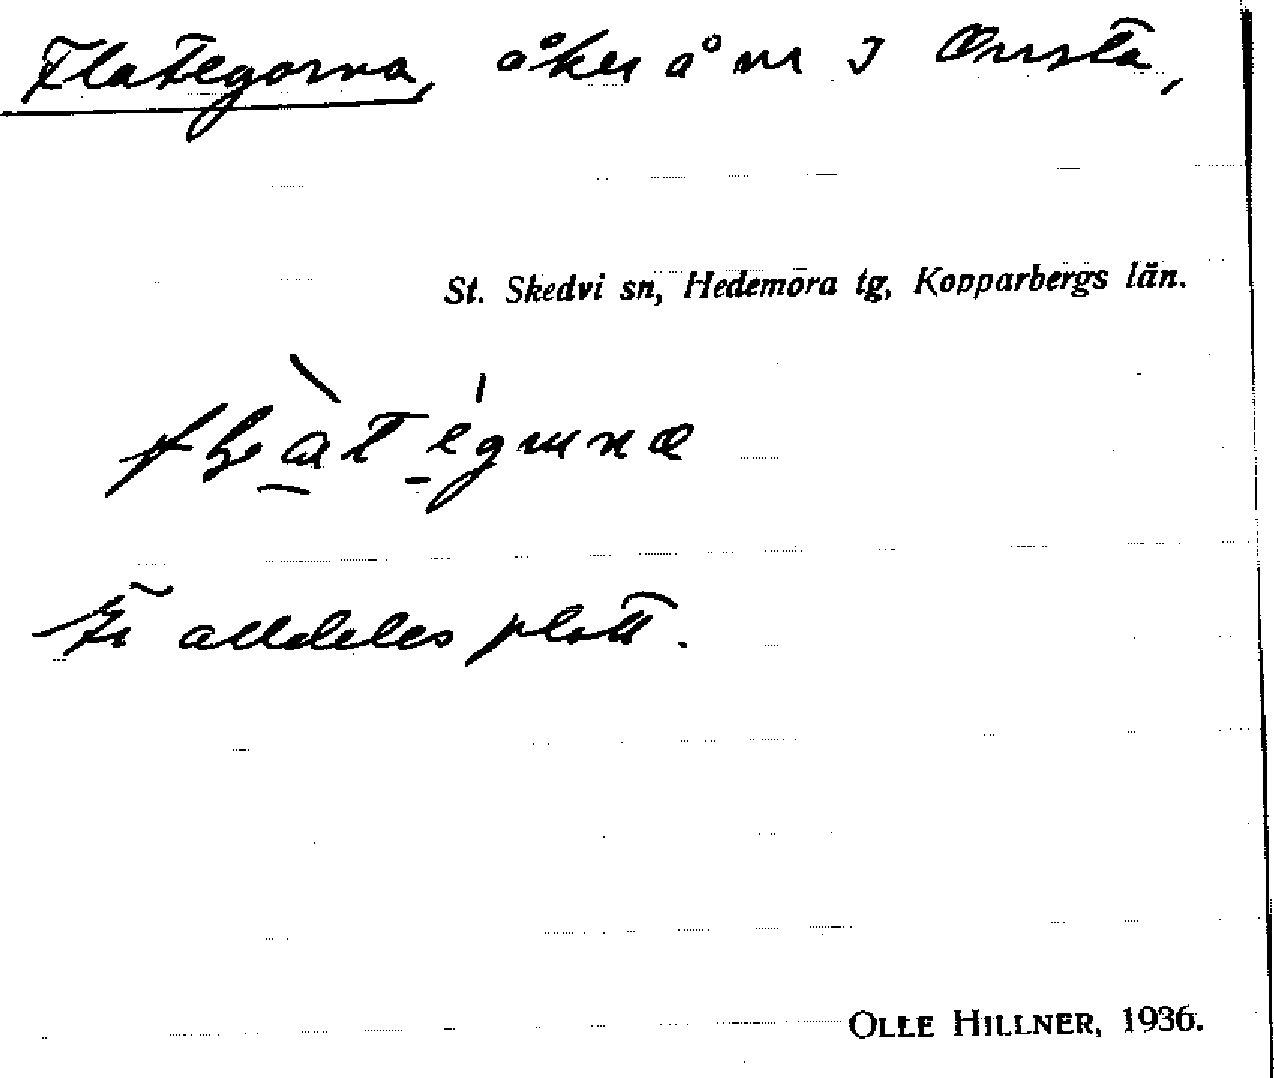 Flategorna, åker å nr 3 Onsta,
St. Skedvi sn, Hedemora tg, Kopparbergs län.
alldeles platt.
OLLE HILLNER, 1936.